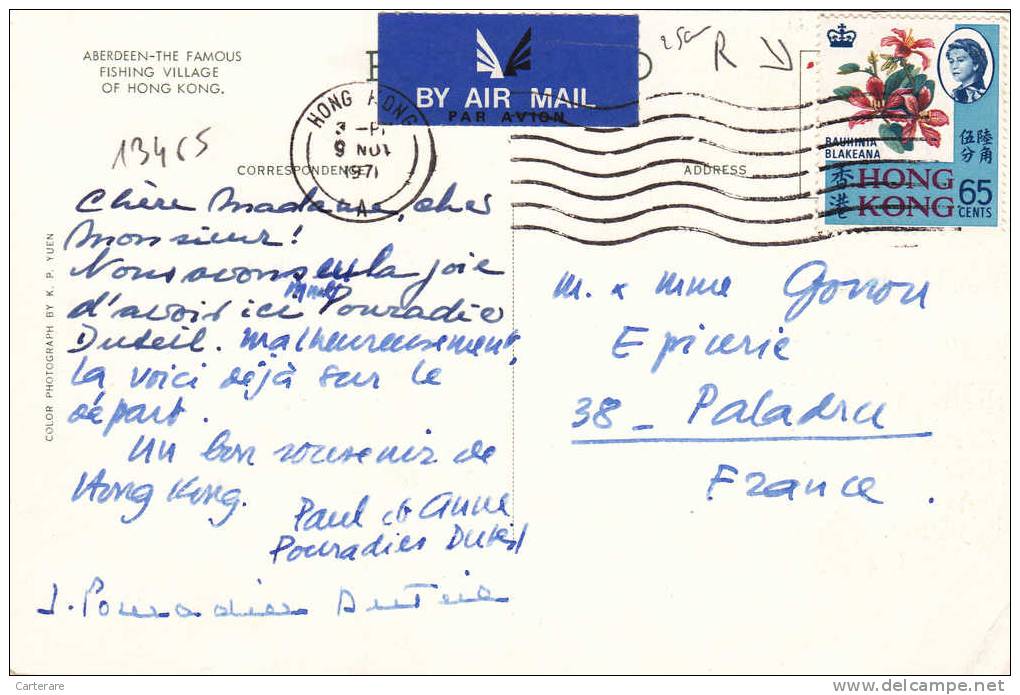 ABERDEEN-THE FAMOUS
FISHING VILLAGE
OF HONG KONG.
BY AIR MAIL
PAR AVION
R
HONG KONG
9 NOV
1971
BAUHINIA
BLAKEANA
伍陸
分角
香港
HONG
KONG
65
CENTS
13465
CORRESPONDENCE
ADDRESS
COLOR PHOTOGRAPH BY K. P. YUEN
Chère Madame, cher
Monsieur!
Nous avons eu la joie
d'avoir ici Pouradier
Duteil. malheureusement,
la voici déjà sur le
départ.
Un bon souvenir de
Hong Kong.
Paul et Anne
Pouradier Duteil
J. Pouradier Duteil
M. & Mme Gonon
Epicerie
38 - Paladru
France.
Carterare
www.delcampe.net